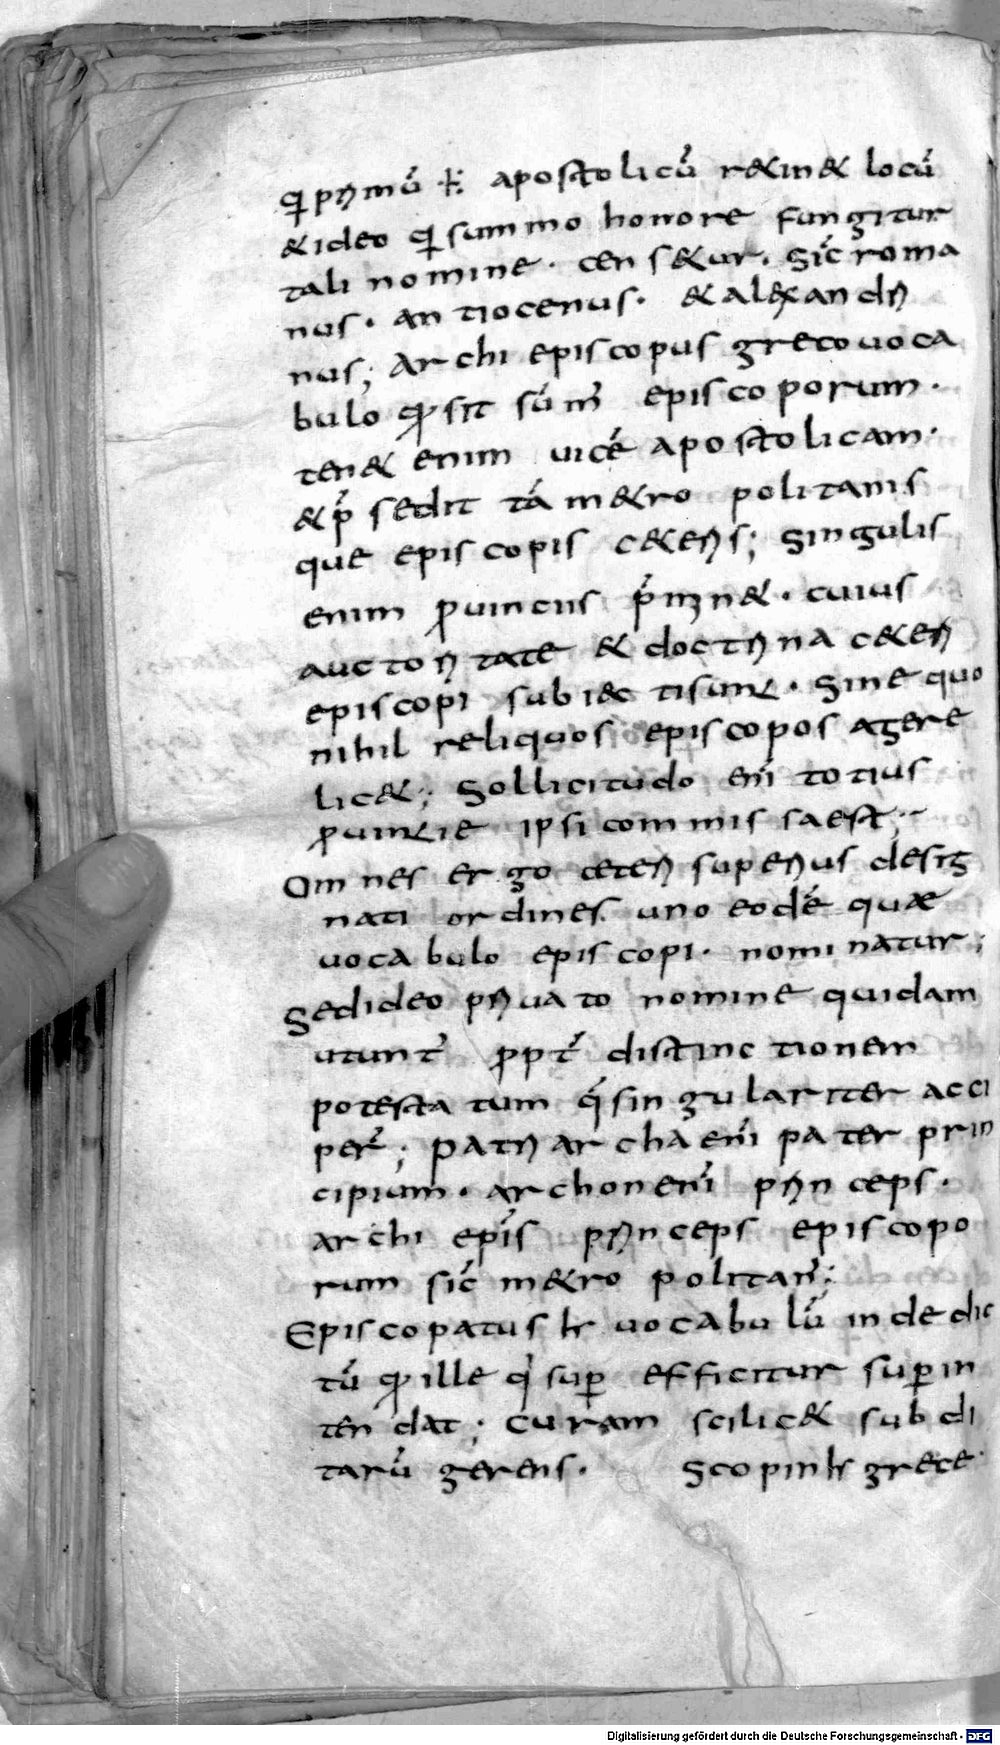 qꝉ primū ÷ apostolicū r&in& locū
&ideo qꝉ summo honore fungitur
tali nomine · censetur · Sic̄ roma
nus · antiocenus · & alexandri
nus; Archiepiscopus greco uoca
bulo qꝉ sit sūm̄ episcoporum ·
ten& enim uicē apostolicam ·
& p̄sedit tā m&ropolitanis
que episcopis c&eris; Singulis
enim ꝓuinciis p̄min& · cuius
auctoritate & doctrina c&eri
episcopi subiectisunt · Sine quo
nihil reliquos episcopos agere
lic&; Sollicitudo enī totius
ꝓuintie ipsi commissaest;
Omnes ergo ceteri superius desig
nati ordines uno eodē quæ
uocabulo episcopi · nominatur;
Sedideo priuato nomine quidam
utunt̄ ꝓpt̄ distinctionem
potestatum q̄ singulariter acci
per̄; Patriarcha enī pater prin
cipium · archon enī princeps ·
archi ep̄is princeps episcopo
rum sic̄ m&ropolitan̄;
Episcopatus hr uocabulū inde dic
tū qꝉ ille q̄ suꝑ efficitur suꝑin
tendat; Curam scilic& subdi
tarū gerens · Scopin hr grece
Digitalisierung gefördert durch die Deutsche Forschungsgemeinschaft - DFG